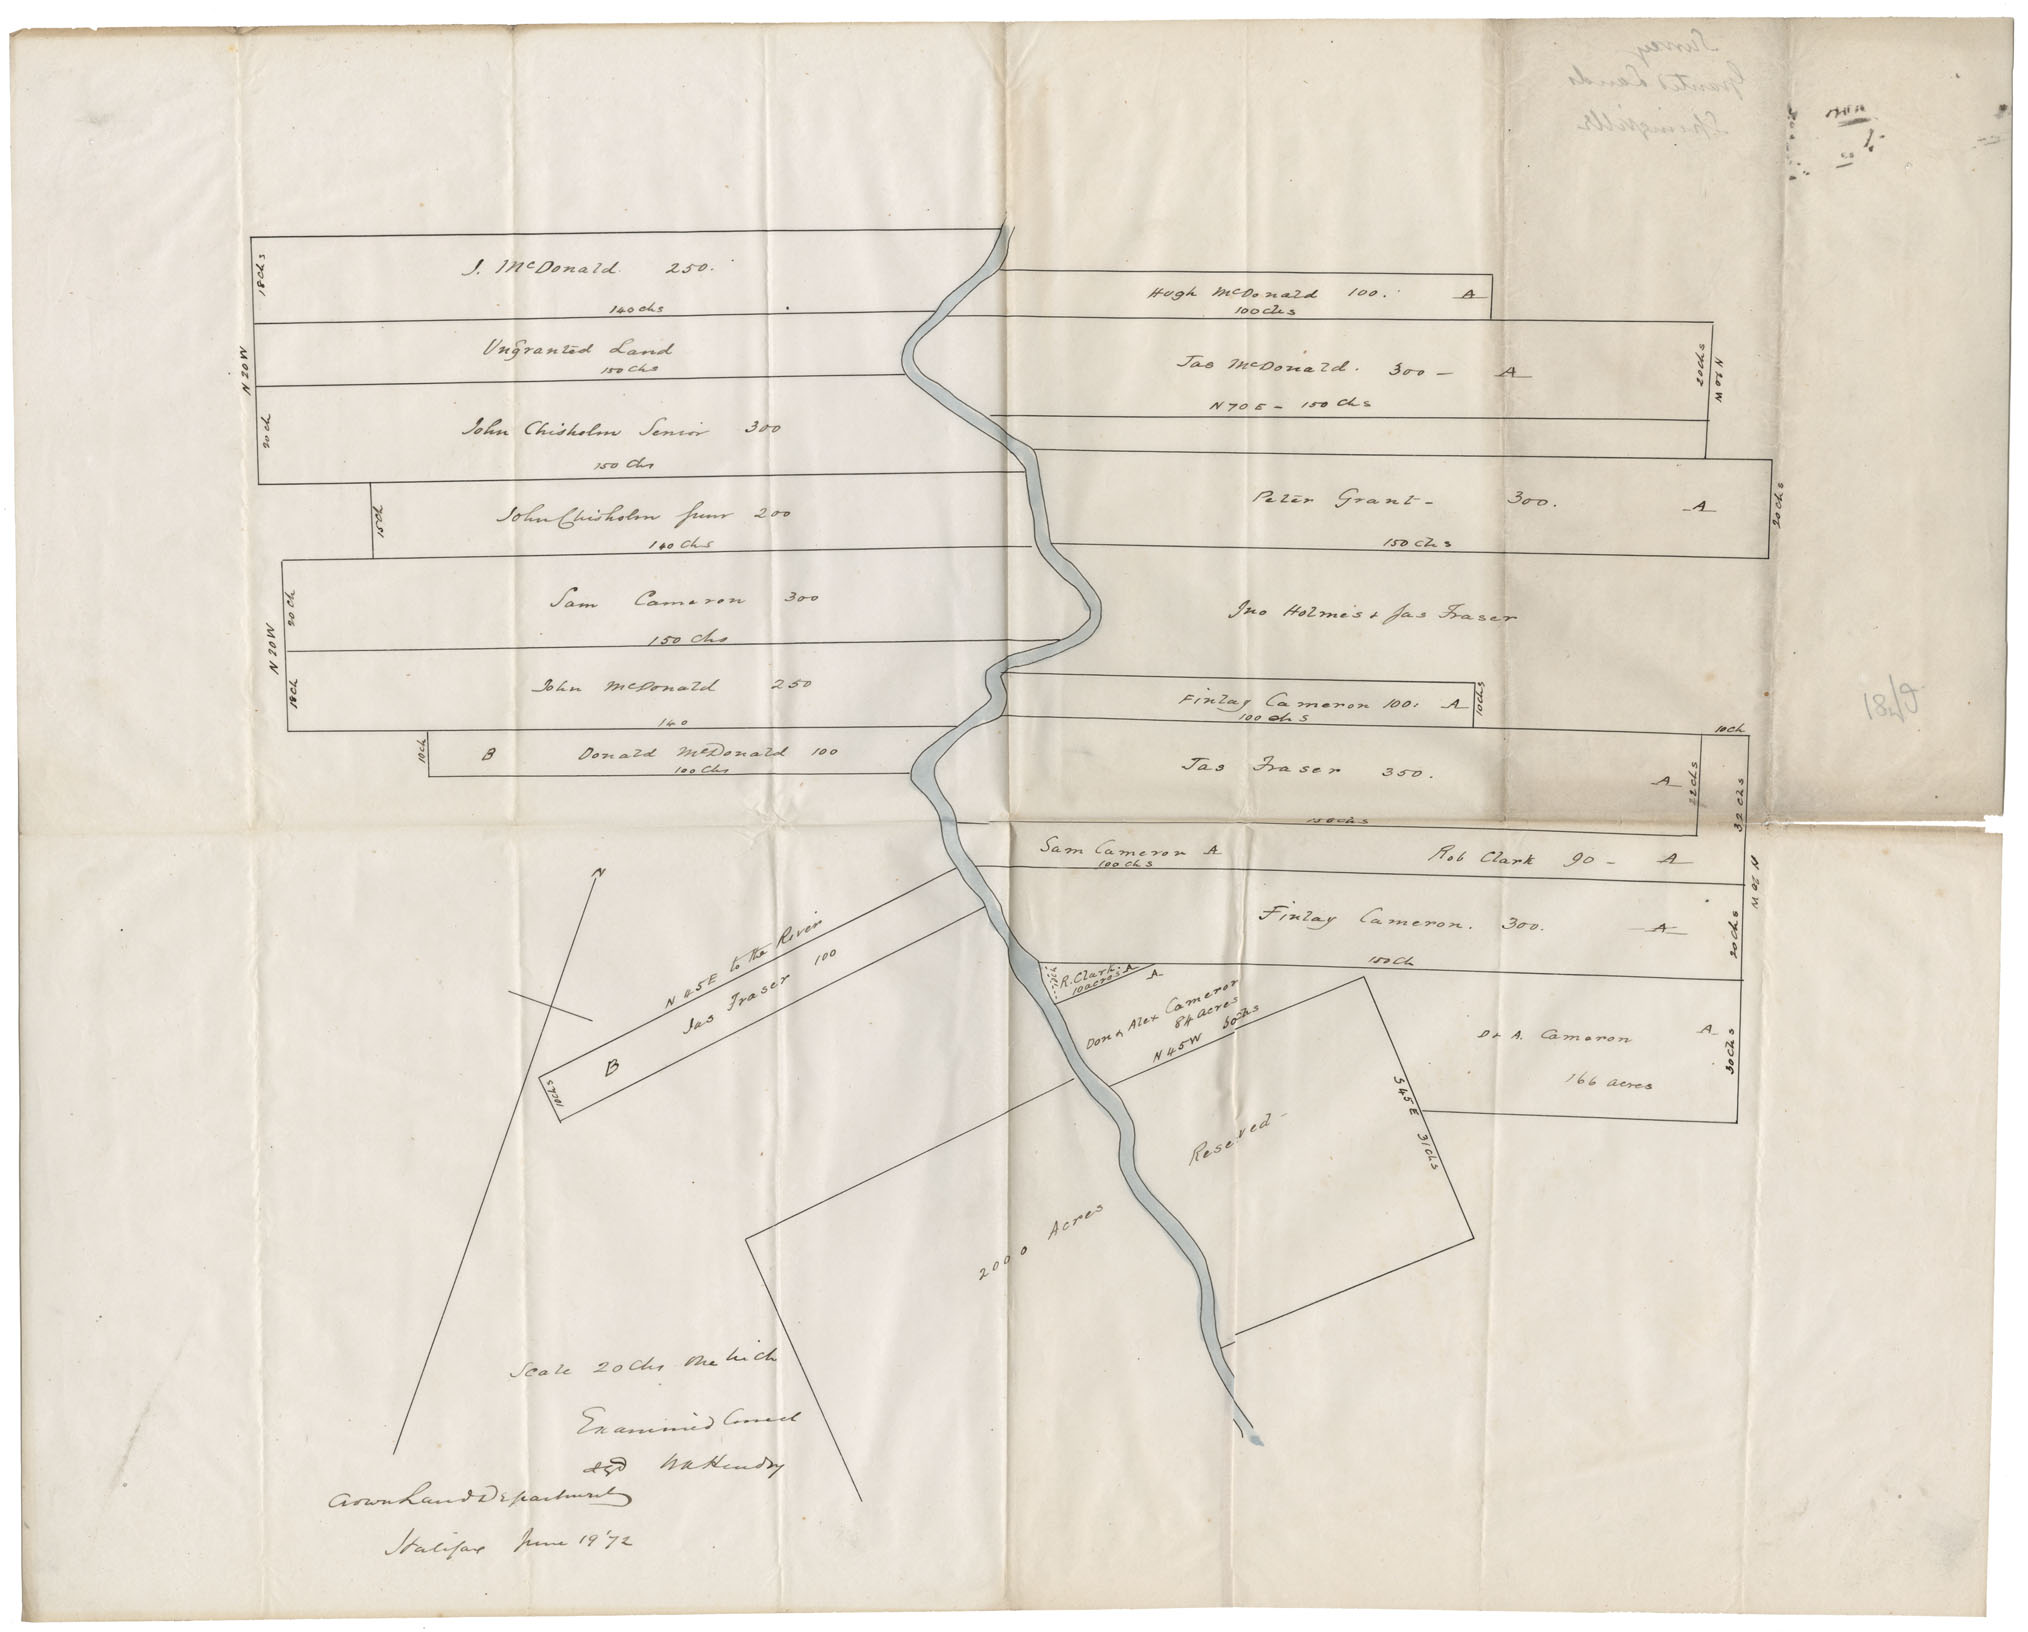 Survey
Granted Lands
Springville
18 Chs
J. McDonald. 250.
140 Chs
N 20 W
Ungranted Land
150 Chs
20 Ch
John Chisholm Senior 300
150 Chs
15 Ch
John Chisholm Junr 200
140 Chs
20 Ch
Sam Cameron 300
150 Chs
N 20 W
18 Ch
John McDonald 250
140
10 Ch
B Donald McDonald 100
100 Chs
Hugh McDonald 100. A
100 Chs
Jas McDonald. 300 - A
N 70 E - 150 Chs
20 Chs
N 20 W
Peter Grant - 300. A
150 Chs
20 Chs
Jno Holmes & Jas Fraser
Finlay Cameron 100. A
100 Chs
10 Chs
10 Ch
Jas Fraser 350. A
150 Chs
22 Chs
32 Chs
Sam Cameron A
100 Chs
Rob Clark 90 - A
N 20 W
Finlay Cameron. 300. A
150 Ch
20 Chs
R. Clark A
10 acres
A
Don & Alex Cameron
84 acres
N 45 W 50 Chs
D & A. Cameron A
166 acres
30 Chs
S 45 E 31 Chs
Reserved
2000 Acres
N
N 45 E to the River
Jas Fraser 100
B
10 Chs
Scale 20 Chs One Inch
Examined Correct
sgd WA Hendry
Crown Land Department
Halifax June 19 '72